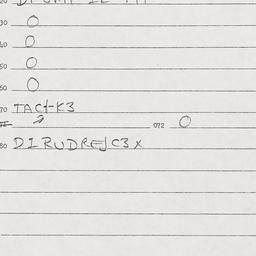 30 O
40 O
50 O
60 O
70 TACt-K3
072 O
80 DIRUDREJC3X